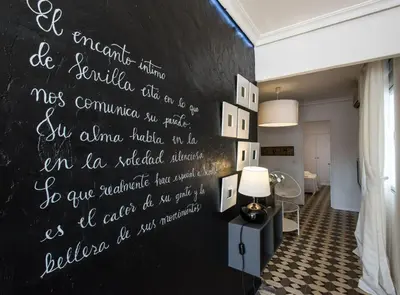 El encanto íntimo
de Sevilla está en lo que
nos comunica su pasado:
Su alma habla en la
en la soledad silenciosa
Lo que realmente hace especial a
es el calor de su gente y la
belleza de sus monumentos